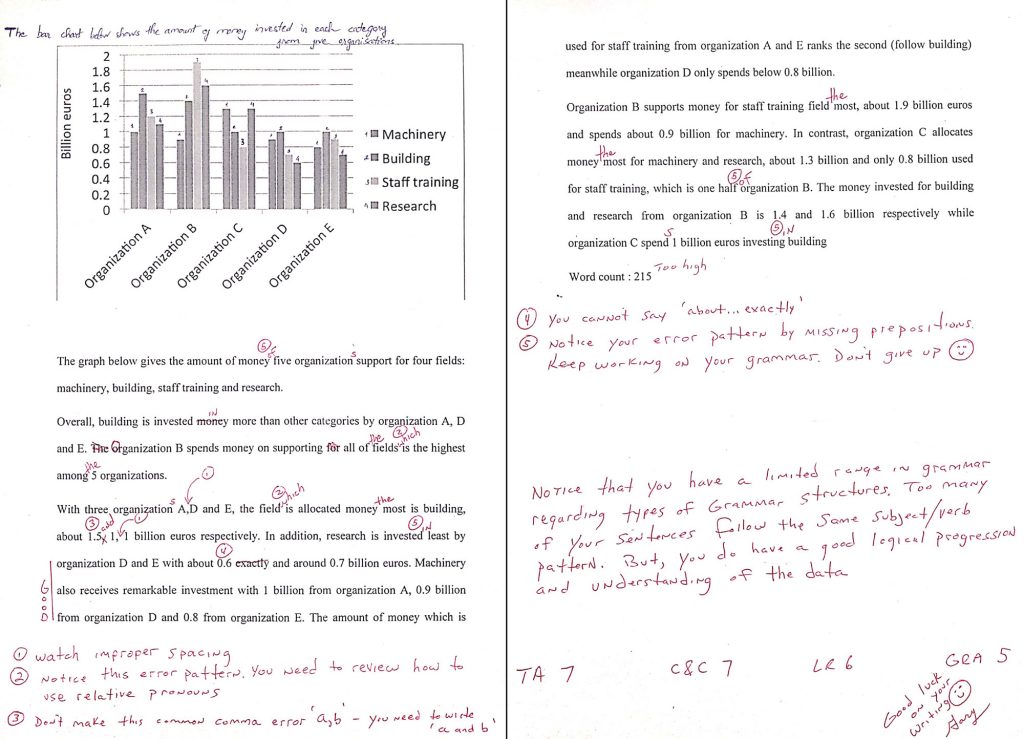 The bar chart below shows the amount of money invested in each category
from five organisations.
2
1.8
1.6
1.4
1.2
1
0.8
0.6
0.4
0.2
0
Billion euros
Machinery
Building
Staff training
Research
Organization A
Organization B
Organization C
Organization D
Organization E
⑤
of s
The graph below gives the amount of money five organization support for four fields:
machinery, building, staff training and research.
in
Overall, building is invested money more than other categories by organization A, D
the ② which
and E. The Organization B spends money on supporting for all of fields is the highest
the
among 5 organizations.
①
s ② which the
With three organization A,D and E, the field is allocated money most is building,
③ and ① ⑤ in
about 1.5, 1, 1 billion euros respectively. In addition, research is invested least by
④
organization D and E with about 0.6 exactly and around 0.7 billion euros. Machinery
GOOD
also receives remarkable investment with 1 billion from organization A, 0.9 billion
from organization D and 0.8 from organization E. The amount of money which is
① watch improper spacing
② Notice this error pattern. You need to review how to
use relative pronouns
③ Don't make this common comma error 'a,b' - you need to write
'a and b'
used for staff training from organization A and E ranks the second (follow building)
meanwhile organization D only spends below 0.8 billion.
the
Organization B supports money for staff training field most, about 1.9 billion euros
and spends about 0.9 billion for machinery. In contrast, organization C allocates
the
money most for machinery and research, about 1.3 billion and only 0.8 billion used
⑤ of
for staff training, which is one half organization B. The money invested for building
and research from organization B is 1.4 and 1.6 billion respectively while
s ⑤ in
organization C spend 1 billion euros investing building
Word count : 215 Too high
④ You cannot say 'about... exactly'
⑤ Notice your error pattern by missing prepositions.
Keep working on your grammar. Don't give up
Notice that you have a limited range in grammar
regarding types of Grammar structures. Too many
of your sentences follow the same subject/verb
pattern. But, you do have a good logical progression
and understanding of the data
TA 7 C&C 7 LR 6 GRA 5
Good luck
on your
writing
Gary